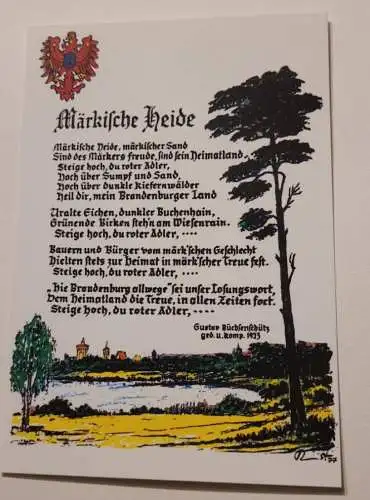 Märkische Heide
Märkische Heide, märkischer Sand
Sind des Märkers freude, sind sein Heimatland
Steige hoch, du roter Adler,
Hoch über Sumpf und Sand,
Hoch über dunkle Kiefernwälder
Heil dir, mein Brandenburger Land
Uralte Eichen, dunkler Buchenhain,
Grünende Birken steh'n am Wiesenrain.
Steige hoch, du roter Adler, ····
Bauern und Bürger vom märk'schen Geschlecht
Hielten stets zur Heimat in märk'scher Treue fest.
Steige hoch, du roter Adler, ····
„Hie Brandenburg allwege" sei unser Losungswort,
Dem Heimatland die Treue, in allen Zeiten fort.
Steige hoch, du roter Adler, ····
Gustav Büchsenschütz
ged. u. komp. 1923